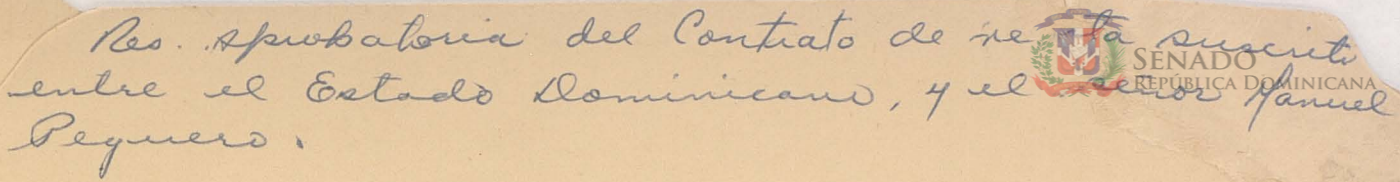 Res. aprobatoria del Contrato de venta suscrito
entre el Estado Dominicano, y el señor Manuel
Peguero.
SENADO
REPÚBLICA DOMINICANA